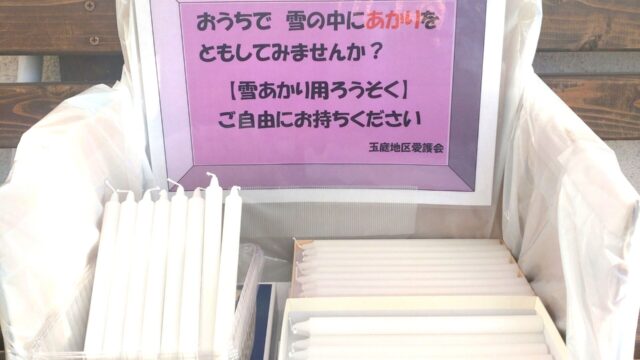 おうちで 雪の中にあかりを
ともしてみませんか？
【雪あかり用ろうそく】
ご自由にお持ちください
玉庭地区愛護会